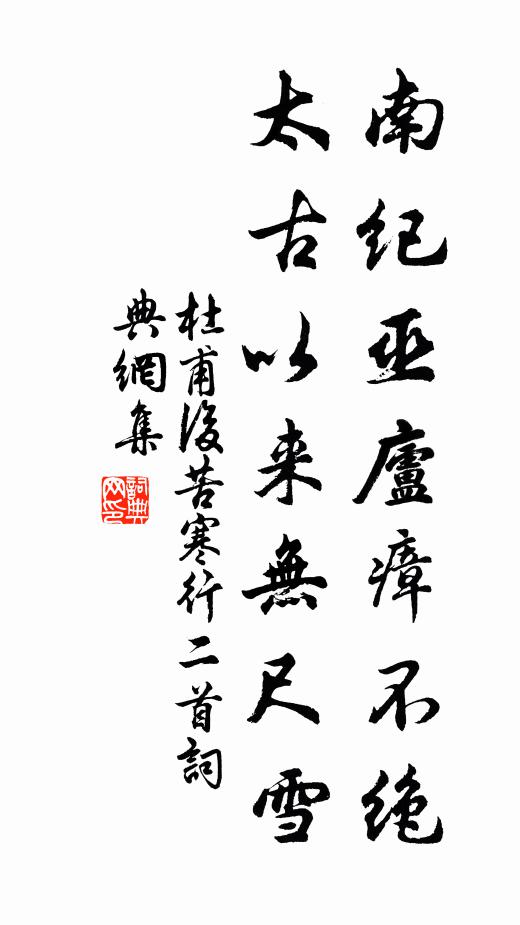 南纪巫廬瘴不绝
太古以来無尺雪
杜甫後苦寒行二首詞
典網集
詞典网印